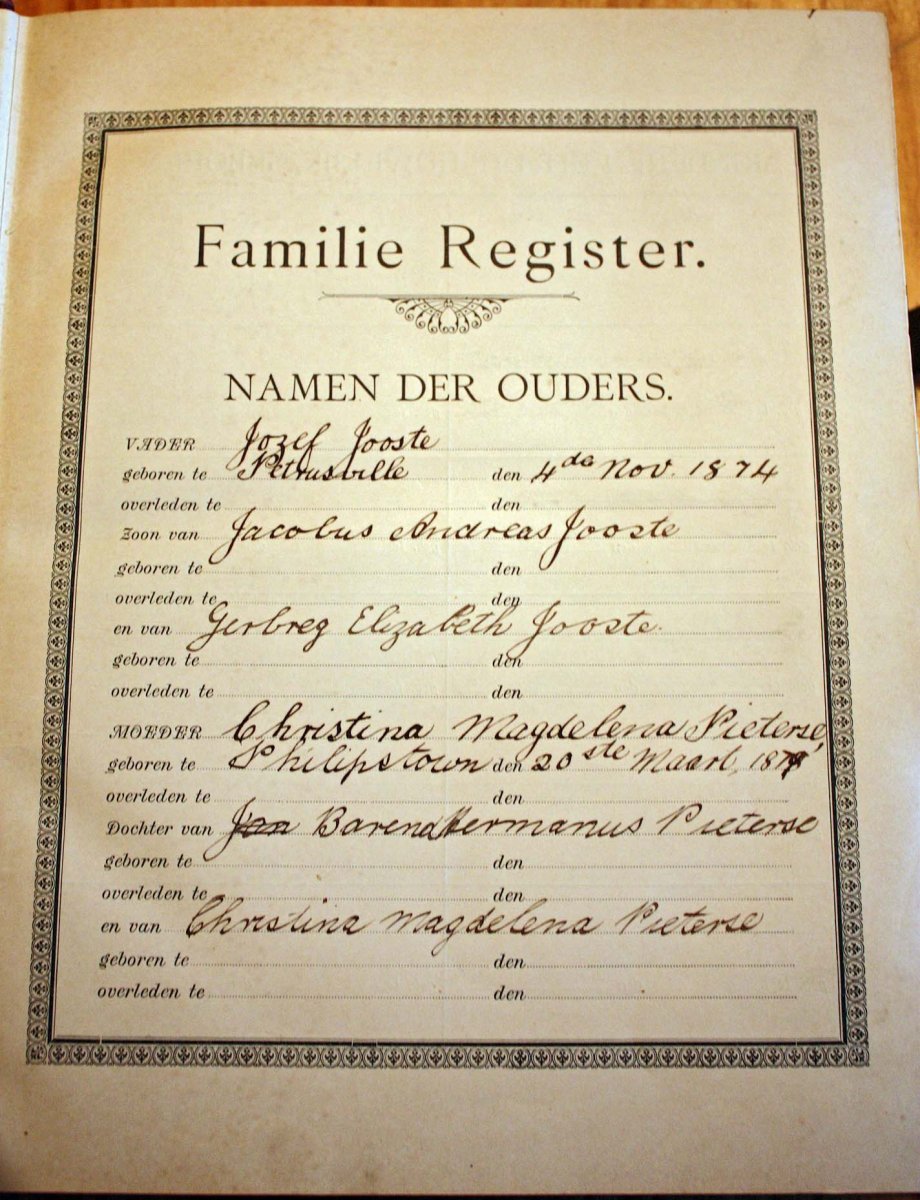 Familie Register.
NAMEN DER OUDERS.
VADER Jozef Jooste
geboren te Petrusville den 4de Nov. 1874
overleden te den
Zoon van Jacobus Andreas Jooste
geboren te den
overleden te den
en van Gerbreg Elizabeth Jooste.
geboren te den
overleden te den
MOEDER Christina Magdelena Pieterse,
geboren te Philipstown den 20ste Maart,
overleden te den
Dochter van Jan Barend Hermanus Pieterse
geboren te den
overleden te den
en van Christina Magdelena Pieterse
geboren te den
overleden te den